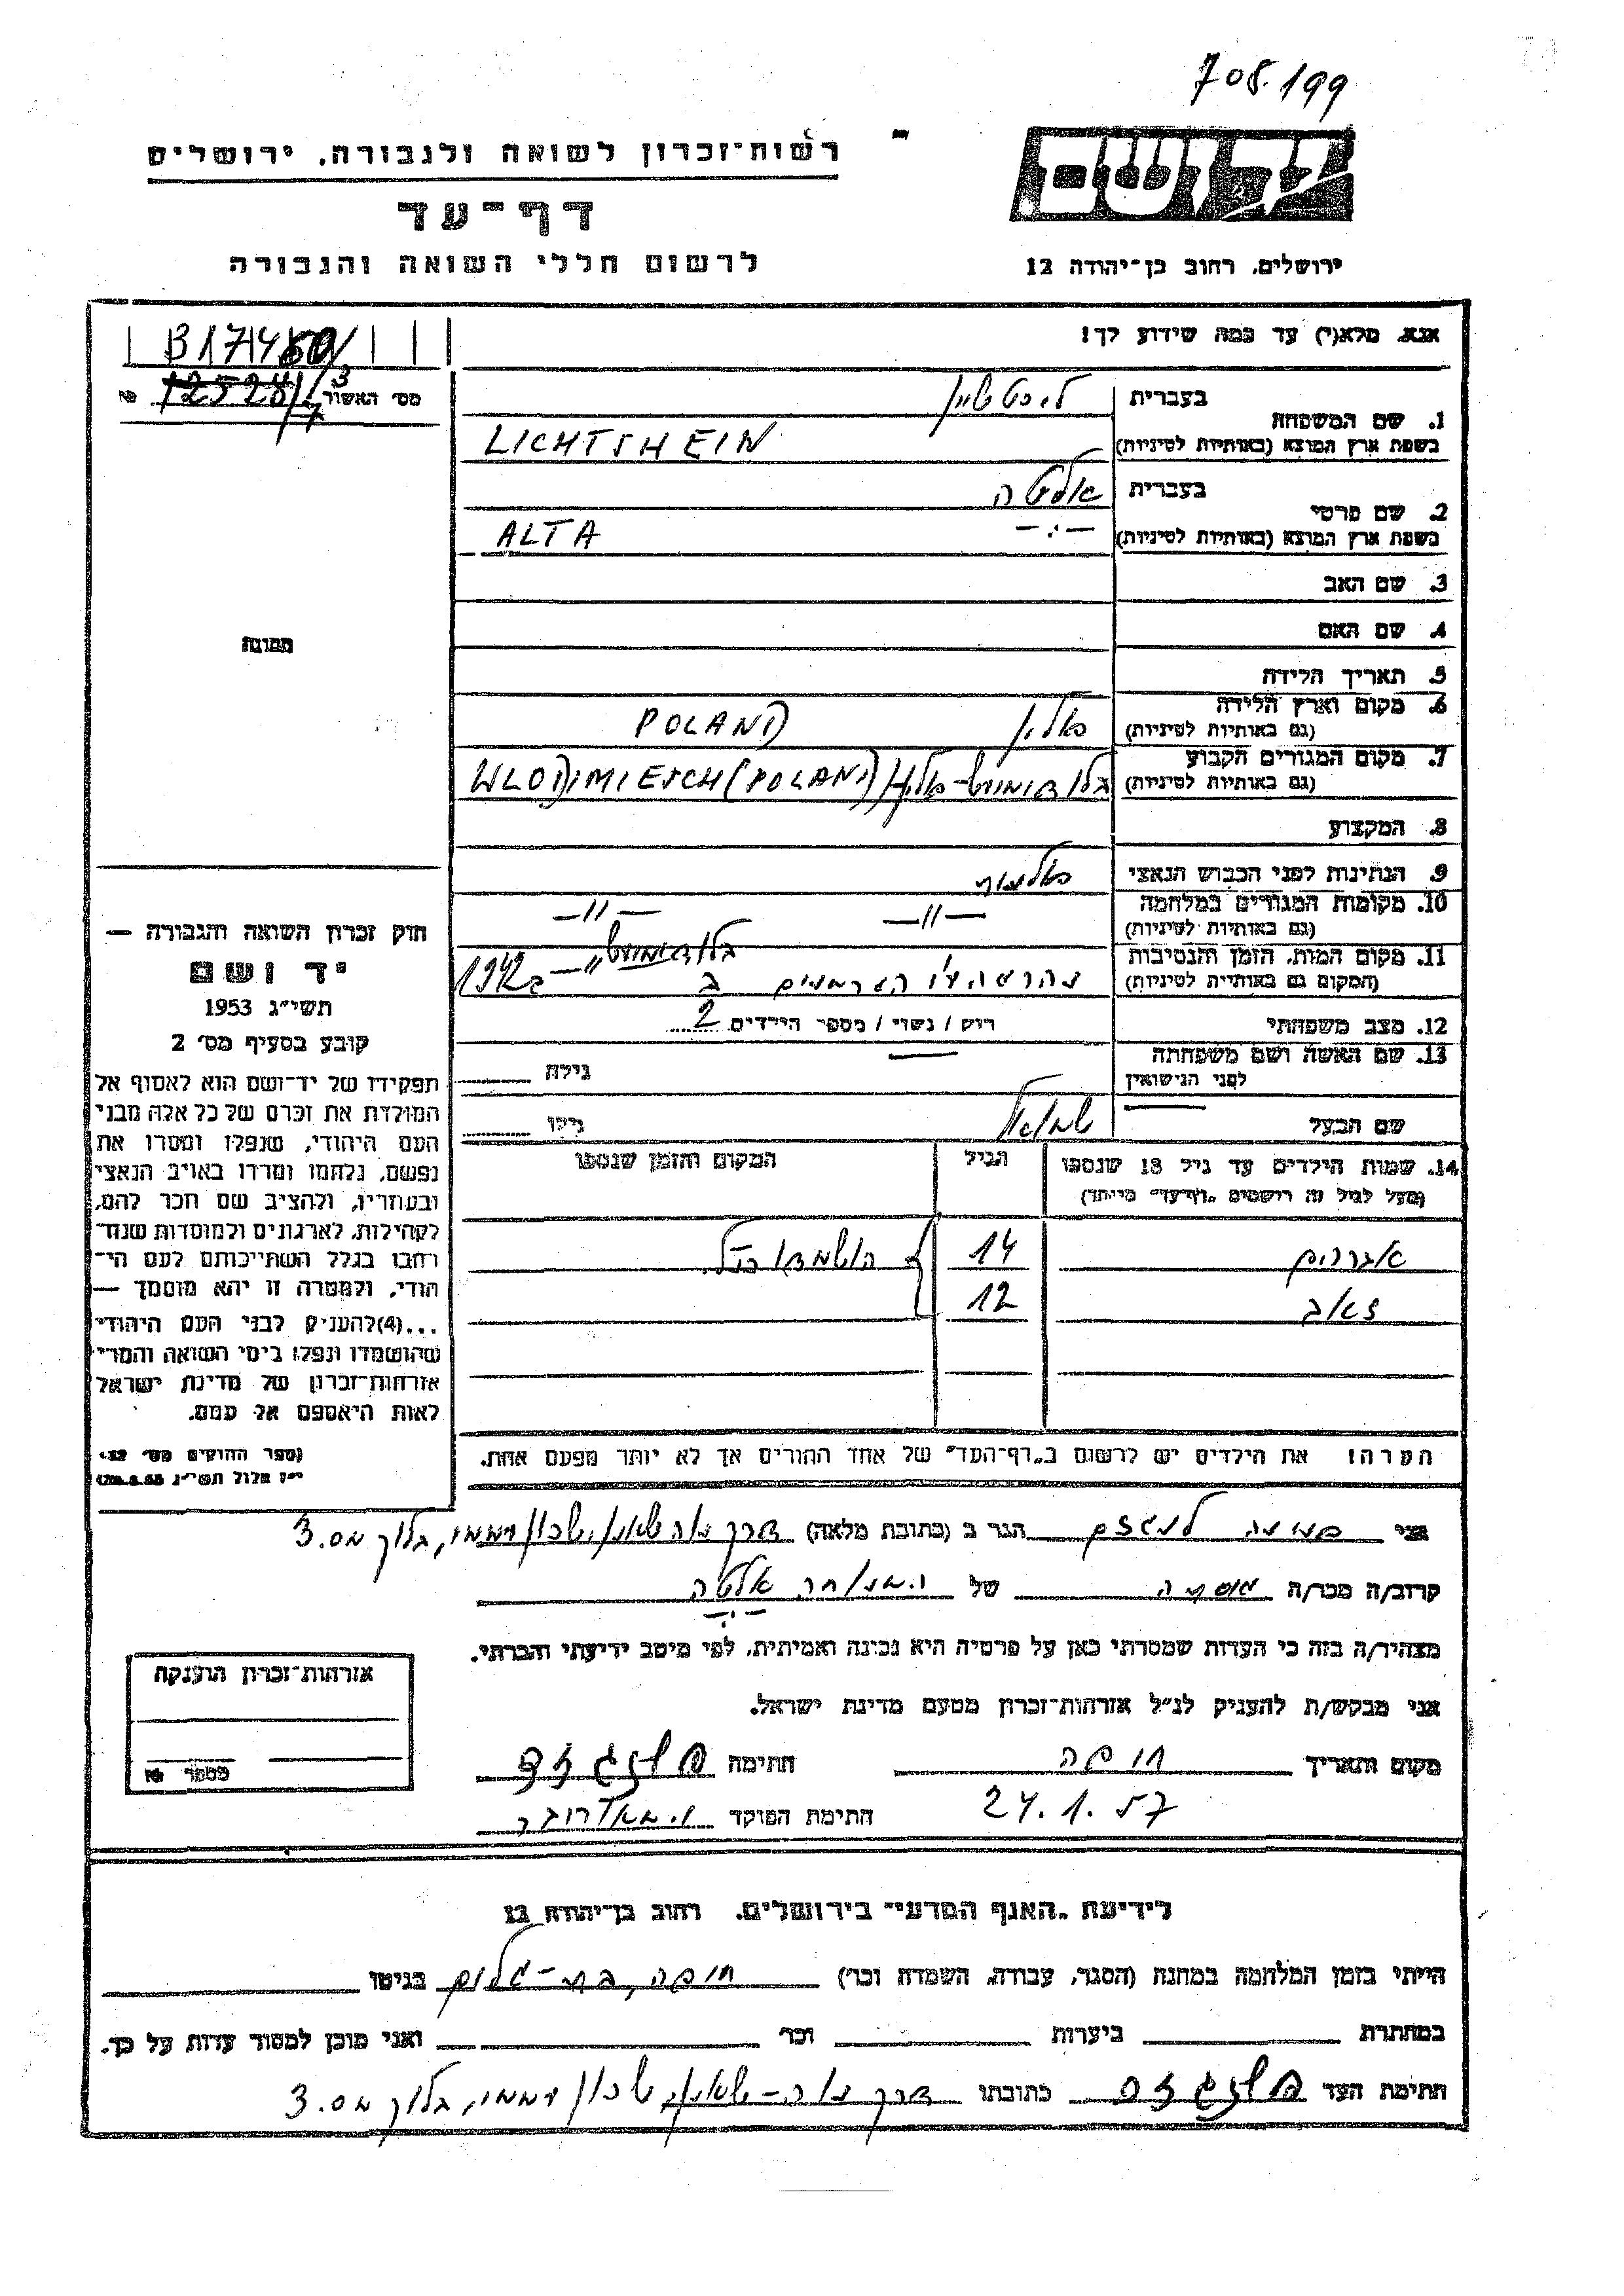 708.199
רשות־זכרון לשואה ולגבורה, ירושלים
יד ושם
דף־עד
לרשום חללי השואה והגבורה
ירושלים, רחוב בן־יהודה 12
אנא מלא(י) עד כמה שידוע לך!
מס׳ האשור
1. שם המשפחה
בעברית ליכטשיין
בשפת ארץ המוצא (באותיות לטיניות) LICHTSHEIN
2. שם פרטי
בעברית אלטה
בשפת ארץ המוצא (באותיות לטיניות) ALTA
3. שם האב
4. שם האם
תמונה
5. תאריך הלידה
6. מקום וארץ הלידה
(גם באותיות לטיניות) פולין POLAND
7. מקום המגורים הקבוע
(גם באותיות לטיניות) WLODJMIEJCH (POLAND)
8. המקצוע
9. הנתינות לפני הכבוש הנאצי פולנית
10. מקומות המגורים במלחמה
(גם באותיות לטיניות) —״— —״—
11. מקום המות, הזמן והנסיבות
(המקום גם באותיות לטיניות) נהרגה ע״י הגרמנים ב ב־1942
12. מצב משפחתי רוק / נשוי / מספר הילדים 2
13. שם האשה ושם משפחתה
לפני הנישואין גילה
שם הבעל שמואל גילו
14. שמות הילדים עד גיל 18 שנספו
(מעל לגיל זה רושמים ״דף־עד״ מייחד)
הגיל
המקום והזמן שנספו
אברהם 14 הושמדו כנ״ל
זאב 12
הערה: את הילדים יש לרשום ב״דף־העד״ של אחד ההורים אך לא יותר מפעם אחת.
חוק זכרון השואה והגבורה —
יד ושם
תשי״ג 1953
קובע בסעיף מס׳ 2
תפקידו של יד־ושם הוא לאסוף אל
המולדת את זכרם של כל אלה מבני
העם היהודי, שנפלו ומסרו את
נפשם, נלחמו ומרדו באויב הנאצי
ובעוזריו, ולהציב שם וזכר להם,
לקהילות, לארגונים ולמוסדות שנח־
רבו בגלל השתייכותם לעם הי־
הודי, ולמטרה זו יהא מוסמך —
...(4) להעניק לבני העם היהודי
שהושמדו ונפלו בימי השואה והמרי
אזרחות־זכרון של מדינת ישראל
לאות היאספם אל עמם.
(ספר החוקים מס׳ 132,
י״ז אלול תשי״ג 28.8.53)
אני הגר ב (כתובת מלאה) דרך נוה שאנן, בלוק מס. 3
קרוב/ה מכר/ה גיסתה של המנוחה אלטה
מצהיר/ה בזה כי העדות שמסרתי כאן על פרטיה היא נכונה ואמיתית, לפי מיטב ידיעתי והכרתי.
אני מבקש/ת להעניק לנ״ל אזרחות־זכרון מטעם מדינת ישראל.
אזרחות־זכרון הוענקה
מספר
מקום ותאריך חיפה חתימה
24.1.57 חתימת הפוקד
לידיעת ״האגף המדעי״ בירושלים, רחוב בן־יהודה 12
הייתי בזמן המלחמה במחנה (הסגר, עבודה, השמדה וכו׳) חיפה, בת־גלים בגיטו
במחתרת ביערות וכו׳ ואני מוכן למסור עדות על כך.
חתימת העד כתובתו דרך נוה־שאנן, בלוק מס. 3